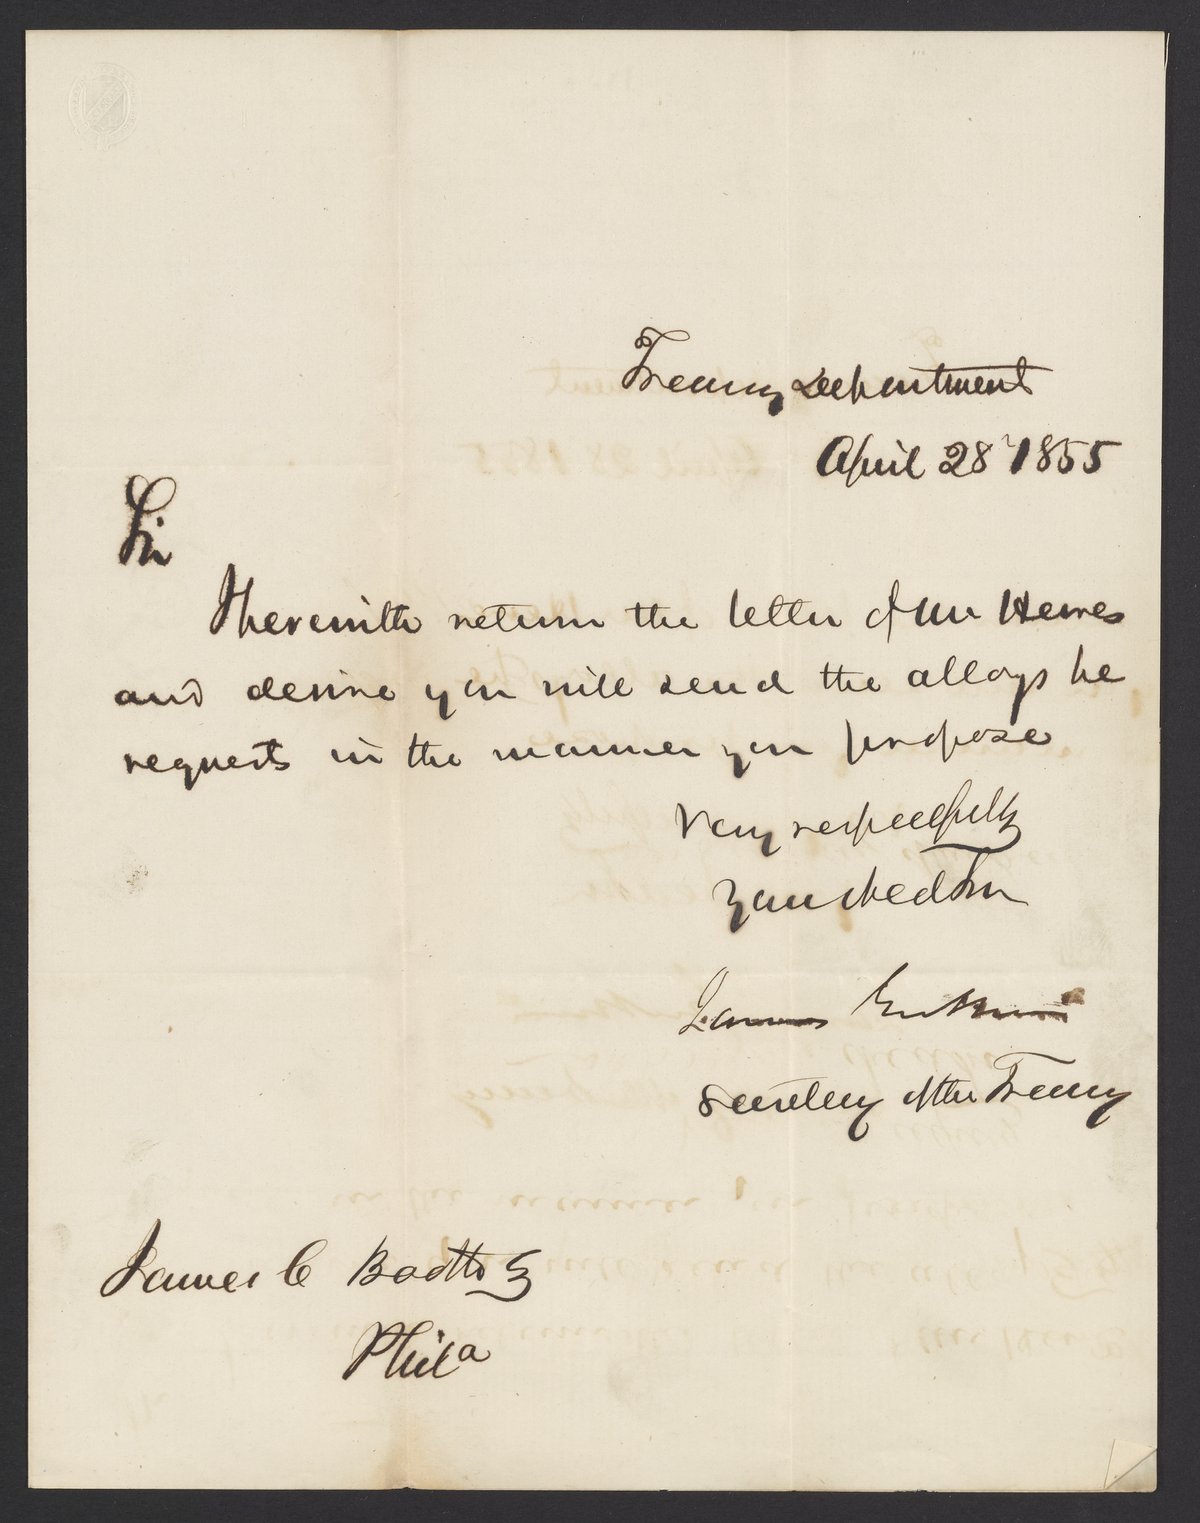 Treasury Department
April 28 1855
Sir
I herewith return the letter of Mr Hewes
and desire you will send the alloys he
requests in the manner you propose
Very respectfully
Your obed Svr
James Guthrie
Secretary of the Treasury
James C Booth Esq
Phila